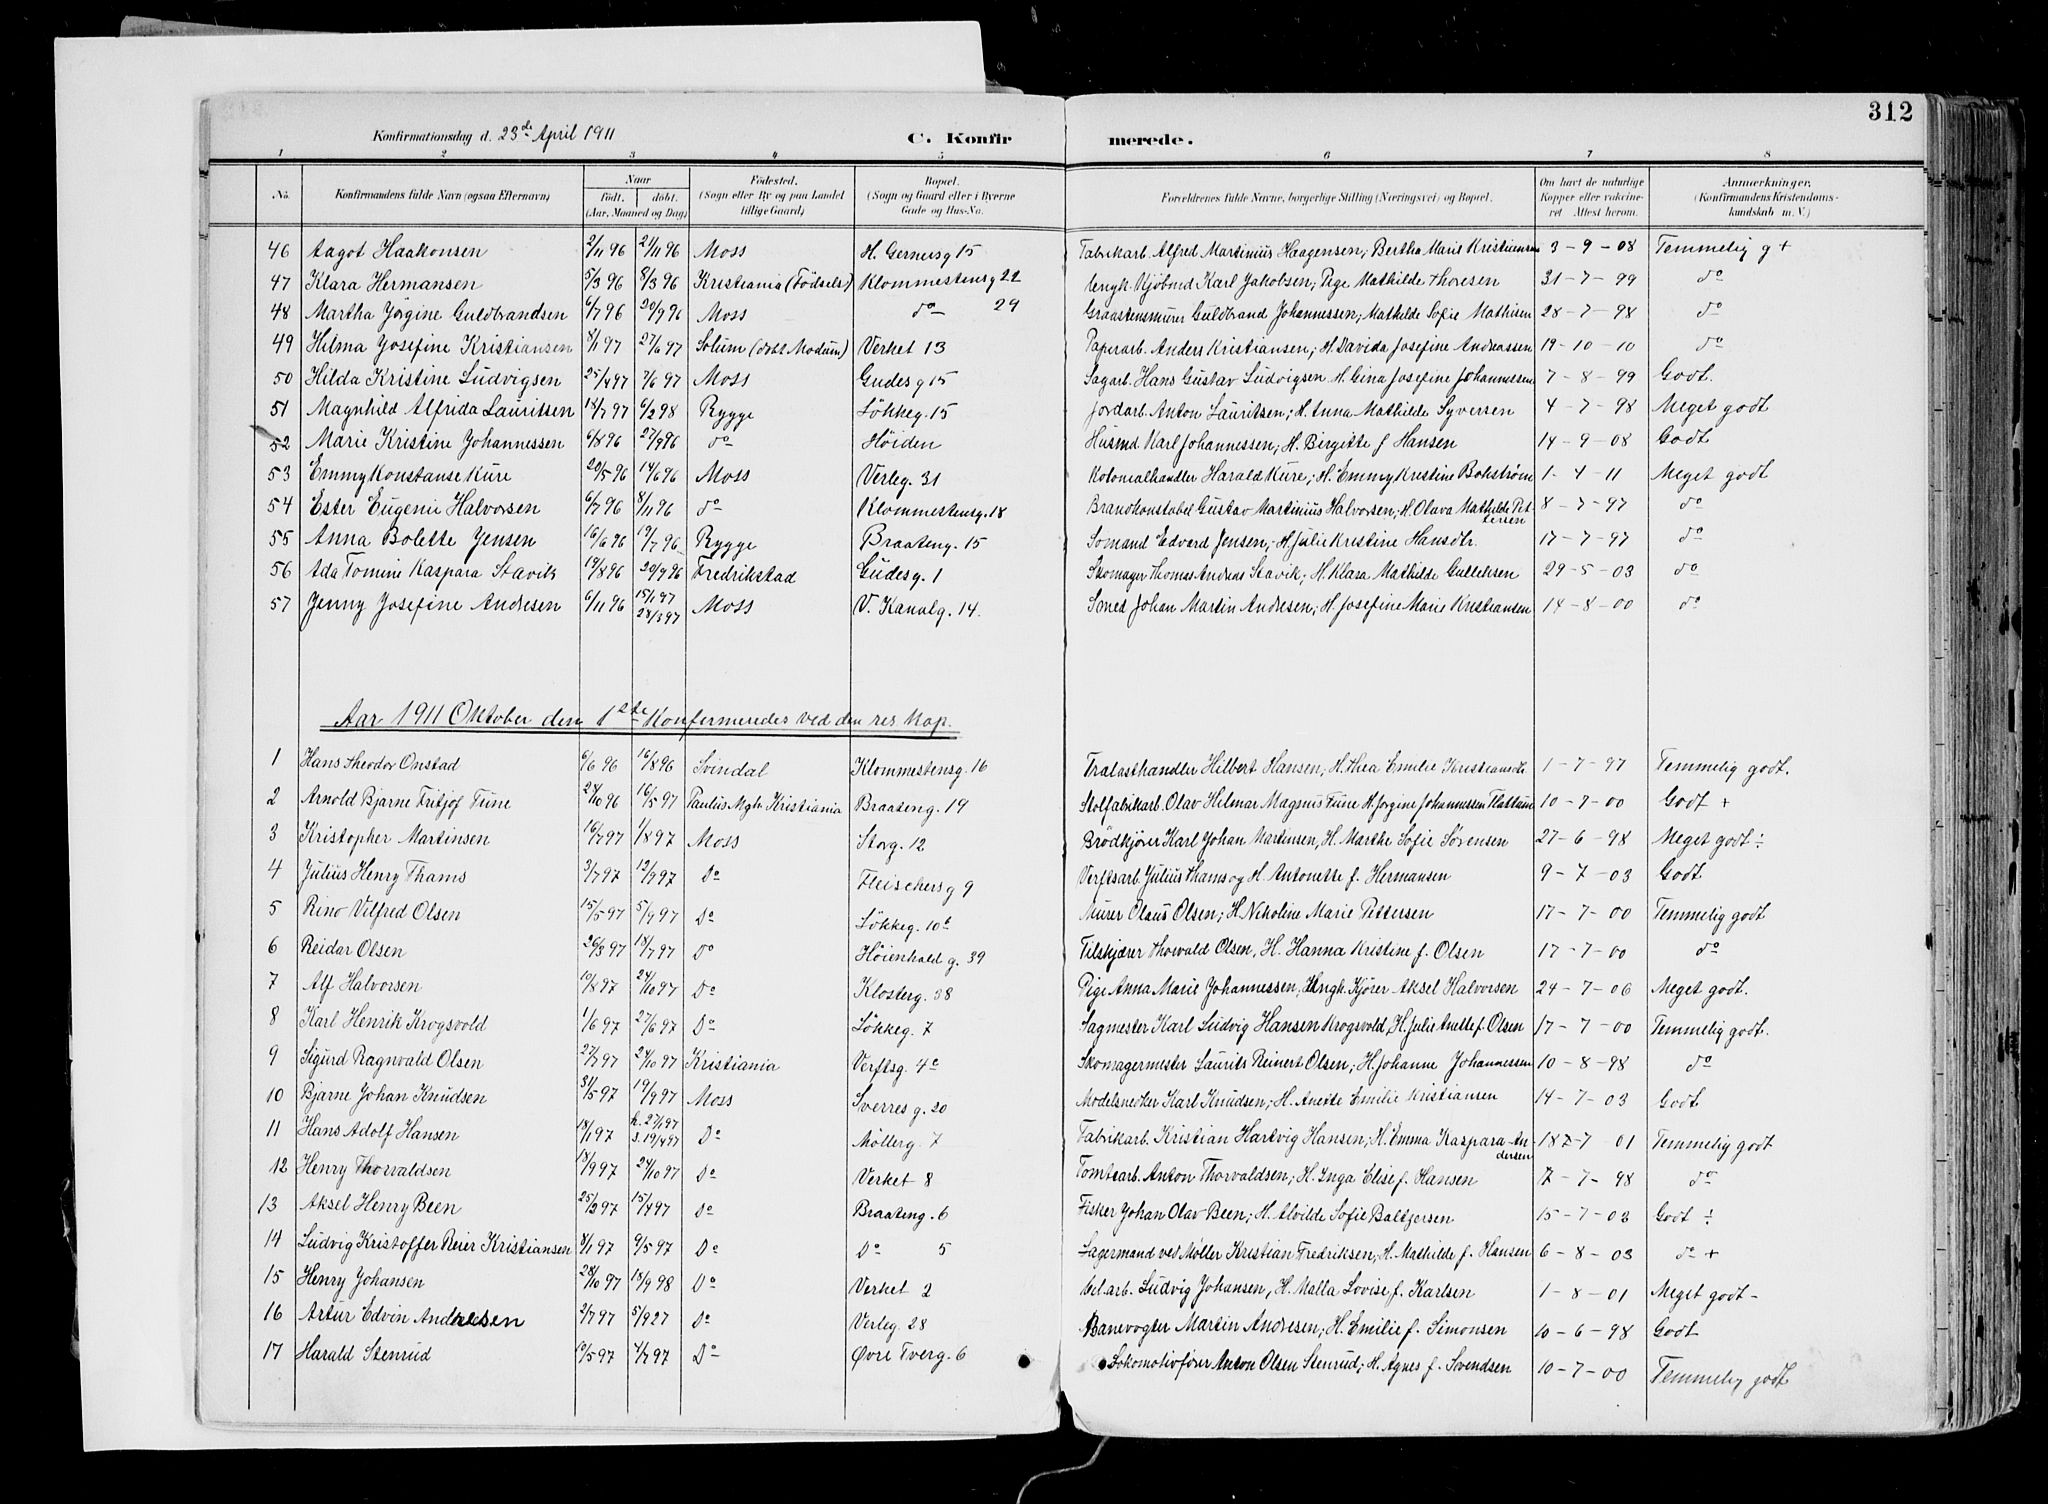 312
Konfirmationsdag d. 23de April 1911 C. Konfirmerede.
1 2 3 4 5 6 7 8
No. Konfirmandens fulde Navn (ogsaa Efternavn) Naar født. døbt. (Aar, Maaned og Dag) Fødested. (Sogn eller By og paa Landet tillige Gaard) Bopæl. (Sogn og Gaard eller i Byerne Gade og Hus-No. Forældrenes fulde Navne, borgerlige Stilling (Næringsvei) og Bopæl. Om havt de naturlige Kopper eller vakcineret Attest herom. Anmærkninger. (Konfirmandens Kristendomskundskab m. V.)
46 Aagot Haakonsen 2/11 96 27/11 96 Moss H. Gernersg 15 Fabrikarb. Alfred Martinius Haagensen; Bertha Marie Kristiensen 3-9-08 Temmelig g +
47 Klara Hermansen 5/3 96 8/3 96 Kristiania (Fødsels) Klommestensg 22 Ungk. Kjøbmd Karl Jakobsen; Pige Mathilde Thoresen 31-7-99 do
48 Martha Jørgine Guldbrandsen 6/7 96 20/9 96 Moss do 29 Graastensmurer Guldbrand Johannessen; Mathilde Sofie Mathisen 28-7-98 do
49 Hilma Josefine Kristiansen 8/1 97 27/6 97 Solum (døbt Modum) Verket 13 Papirarb. Anders Kristiansen; H. Davida Josefine Andreassen 19-10-10 do
50 Hilda Kristine Ludvigsen 25/4 97 7/6 97 Moss Gudesg 15 Sagarb. Hans Gustav Ludvigsen H. Gina Josefine Johannessen 7-8-99 Godt.
51 Magnhild Alfrida Lauritsen 18/7 97 6/2 98 Rygge Løkkeg. 15 Jordarb. Anton Lauritsen; H. Anna Mathilde Syversen 4-7-98 Meget godt
52 Marie Kristine Johannessen 6/8 96 27/9 96 do Høiden Husmd Karl Johannessen; H. Birgitte f Hansen 14-9-08 Godt
53 Emmy Konstanse Kure 20/5 96 14/6 96 Moss Verleg. 31 Kolonialhandler Harald Kure; H. Emmy Kristine Bokstrøm 1-4-11 Meget godt
54 Ester Eugenie Halvorsen 6/7 96 8/11 96 do Klommestensg. 18 Brandkonstabel Gustav Martinius Halvorsen; H. Olava Mathilde Pettersen 8-7-97 do
55 Anna Bolette Jensen 16/6 96 19/7 96 Rygge Braateng. 15 Sømand Edvard Jensen; H. Julie Kristine Hansdtr. 17-7-97 do
56 Ada Tomine Kaspara Stavik 19/8 96 20/9 96 Fredrikstad Gudesg. 1 Skomager Thomas Andreas Stavik; H. Klara Mathilde Gulliksen 29-5-03 do
57 Jenny Josefine Andresen 6/11 96 15/1 97 28/3 97 Moss V. Kanalg. 14. Smed Johan Martin Andresen; H. Josefine Marie Kristiansen 14-8-00 do
Aar 1911 Oktober den 1ste Konfirmeredes ved den res. Kap.
1 Hans Theodor Onstad 6/6 96 16/8 96 Svindal Klommestensg. 16 Trælasthandler Hilbert Hansen, H. Thea Emilie Kristiansdt. 1-7-97 Temmelig godt.
2 Arnold Bjarne Fritjof Tune 24/10 96 16/5 97 Paulus Mgh. Kristiania Braateng. 19 Stolfabrikarb. Olav Hilmar Magnus Tune H. Jørgine Johannessen Flattum 10-7-00 Godt +
3 Kristopher Martinsen 16/7 97 1/8 97 Moss Storg. 12 Brødkjører Karl Johan Martinsen, H. Marthe Sofie Sørensen 27-6-98 Meget godt ÷
4 Julius Henry Thams 3/7 97 12/9 97 Do Fleischersg 9 Verftsarb. Julius Thams og H. Antonette f. Hermansen 9-7-03 Godt
5 Rino Vilfred Olsen 15/5 97 5/9 97 Do Løkkeg. 10b Murer Olaus Olsen; H. Nikoline Marie Pettersen 17-7-00 Temmelig godt
6 Reidar Olsen 26/3 97 18/7 97 Do Høienhald g. 39 Tilskjærer Thorvald Olsen, H. Hanna Kristine f. Olsen 17-7-00 do
7 Alf Halvorsen 10/8 97 24/10 97 Do Klosterg. 38 Pige Anna Marie Johannessen, Ungk. Kjører Aksel Halvorsen 24-7-06 Meget godt.
8 Karl Henrik Krogsvold 1/6 97 27/6 97 Do Løkkeg. 7 Sagmester Karl Ludvig Hansen Krogsvold, H. Julie Anette f. Olsen 17-7-00 Temmelig godt.
9 Sigurd Ragnvald Olsen 27/7 97 24/10 97 Kristiania Verftsg. 4c Skomagermester Laurits Reinert Olsen; H. Johanne Johannessen 10-8-98 do
10 Bjarne Johan Knudsen 31/5 97 19/9 97 Moss Sverres g. 20 Modelsnedker Karl Knudsen; H. Anette Emilie Kristiansen 14-7-03 Godt
11 Hans Adolf Hansen 18/1 97 h. 27/1 97 s. 19/4 97 Do Møllerg. 7 Fabrikarb. Kristian Hartvig Hansen; H. Emma Kaspara Andersen 18-7-01 Temmelig godt
12 Henry Thorvaldsen 18/9 97 24/10 97 Do Verket 8 Tomtearb. Anton Thorvaldsen; H. Inga Elise f. Hansen 7-7-98 do
13 Aksel Henry Been 25/2 97 15/4 97 Do Braateng. 6 Fisker Johan Olav Been; H. Alvilde Sofie Baltzersen 15-7-03 Godt ÷
14 Ludvig Kristoffer Reier Kristiansen 8/1 97 9/5 97 Do Do 5 Lagermand ved Møller Kristian Fredriksen; H. Mathilde f. Hansen 6-8-03 do +
15 Henry Johansen 28/10 97 18/9 98 Do Verket 2 Cel. arb. Ludvig Johansen, H. Malla Lovise f. Karlsen 1-8-01 Meget godt -
16 Artur Edvin Andresen 2/7 97 5/9 27 Do Verleg. 28 Banevogter Martin Andresen; H. Emilie f. Simonsen 10-6-98 Godt
17 Harald Stenrud 10/5 97 4/7 97 Do Øvre Tverg. 6 Lokomotivfører Anton Olsen Stenrud; H. Agnes f. Svendsen 10-7-00 Temmelig godt